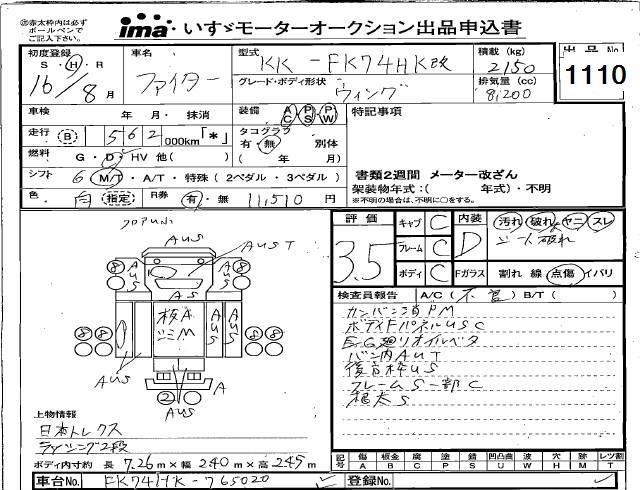 ㊟赤太枠内は必ず
ボールペンで
ご記入下さい。
ima・いすゞモーターオークション出品申込書
初度登録
S・H・R
16/8月
車名
ファイター
型式
KK-FK74HK改
グレード・ボディ形状
ウィング
積載(kg)
2150
排気量(cc)
8,200
出品No
1110
車検 年 月・抹消
走行 B 1 562 000km「*」
燃料 G・D・HV 他( )
シフト 6 M/T・A/T・特殊(2ペダル・3ペダル)
色 白 指定 R券 有・無 11,510円
装備 AC PS PW
タコグラフ
有・無 別体
( 年 月)
特記事項
書類2週間 メーター改ざん
架装物年式:( 年式)・不明
※不明の場合は、不明に〇をする。
フロアUS
AUS
AUST
AUS
AUS
AS
板A
ツミM
AUS
AUS
AUS
A
AUS
8 8
8 8
8 8
2
上物情報
日本トレクス
ラッシング2段
ボディ内寸約 長 7.26m×幅 2.40m×高 2.45m
車台No. FK74HK-765020
評価
3.5
キャブ C
フレーム C
ボディ C
内装
D
汚れ 破れ ヤニ スレ
シート破れ
Fガラス 割れ 線 点傷 イバリ
検査員報告 A/C(不冒)B/T( )
カンバン消PM
ボディFパネルUSC
E/G廻りオイルベタ
バン内AUT
後音枠US
フレームS一部C
根太S
記号 傷 板金 腐 塗 錆 凹凸曲 波 穴 跡 レツ割
A B C P S U W H M T
登録No.